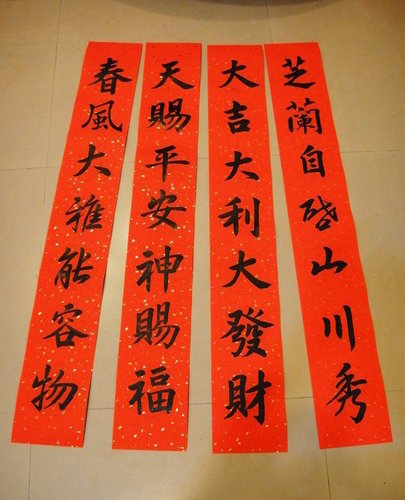 芝蘭自啟山川秀
大吉大利大發財
天賜平安神賜福
春風大雅能容物